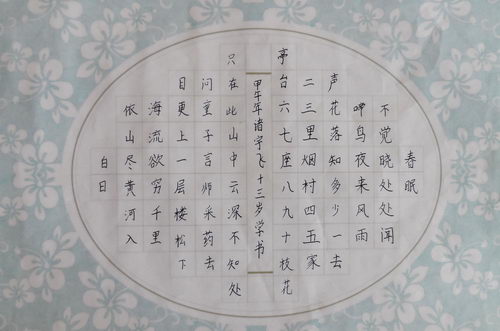 春眠
不觉晓处处闻
啼鸟夜来风雨
声花落知多少一去
二三里烟村四五家
亭台六七座八九十枝花
甲午年诸宇飞十三岁学书
只在此山中云深不知处
问童子言师采药去
目更上一层楼松下
海流欲穷千里
依山尽黄河入
白日